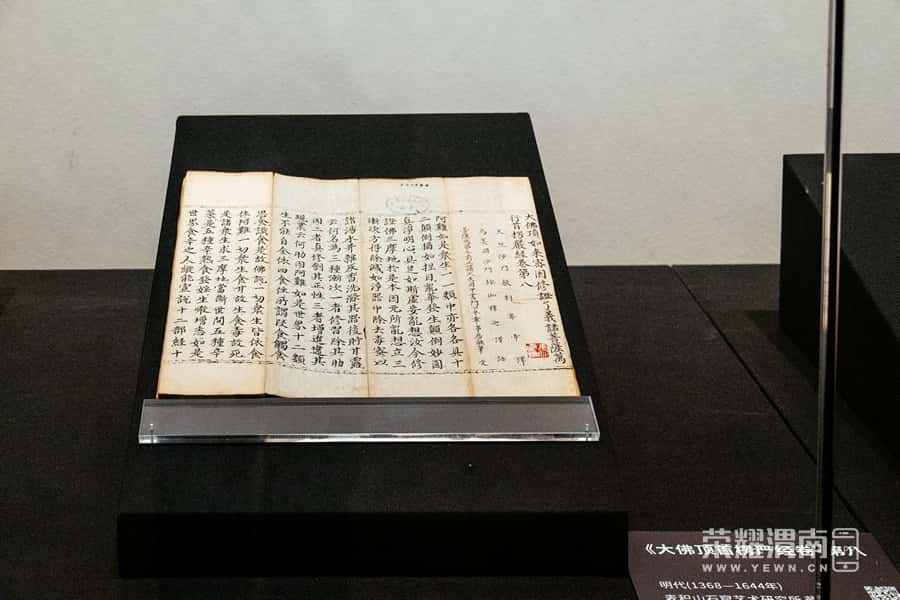 大佛頂如來密因修證了義諸菩薩萬
行首楞嚴經卷第八
天竺沙門般剌蜜帝譯
烏萇國沙門彌伽釋迦譯語
阿難如是衆生一一類中亦各各具十
二顛倒猶如捏目亂華發生顛倒妙圓
真淨明心具足如斯虛妄亂想汝今修
證佛三摩地於是本因元所亂想立三
漸次方得除滅如淨器中除去毒蜜以
諸湯水并雜灰香洗滌其器後貯甘露
云何名為三種漸次一者修習除其助
因二者真修刳其正性三者增進違其
現業云何助因阿難如是世界十二類
生不能自全依四食住所謂段食觸食
思食識食是故佛說一切衆生皆依食
住阿難一切衆生食甘故生食毒故死
是諸衆生求三摩地當斷世間五種辛
菜是五種辛熟食發婬生啖增恚如是
世界食辛之人縱能宣說十二部經十
《大佛顶首楞严经卷》第八
明代(1368—1644年)
麦积山石窟艺术研究所藏
荣耀渭南
WWW.YEWN.CN